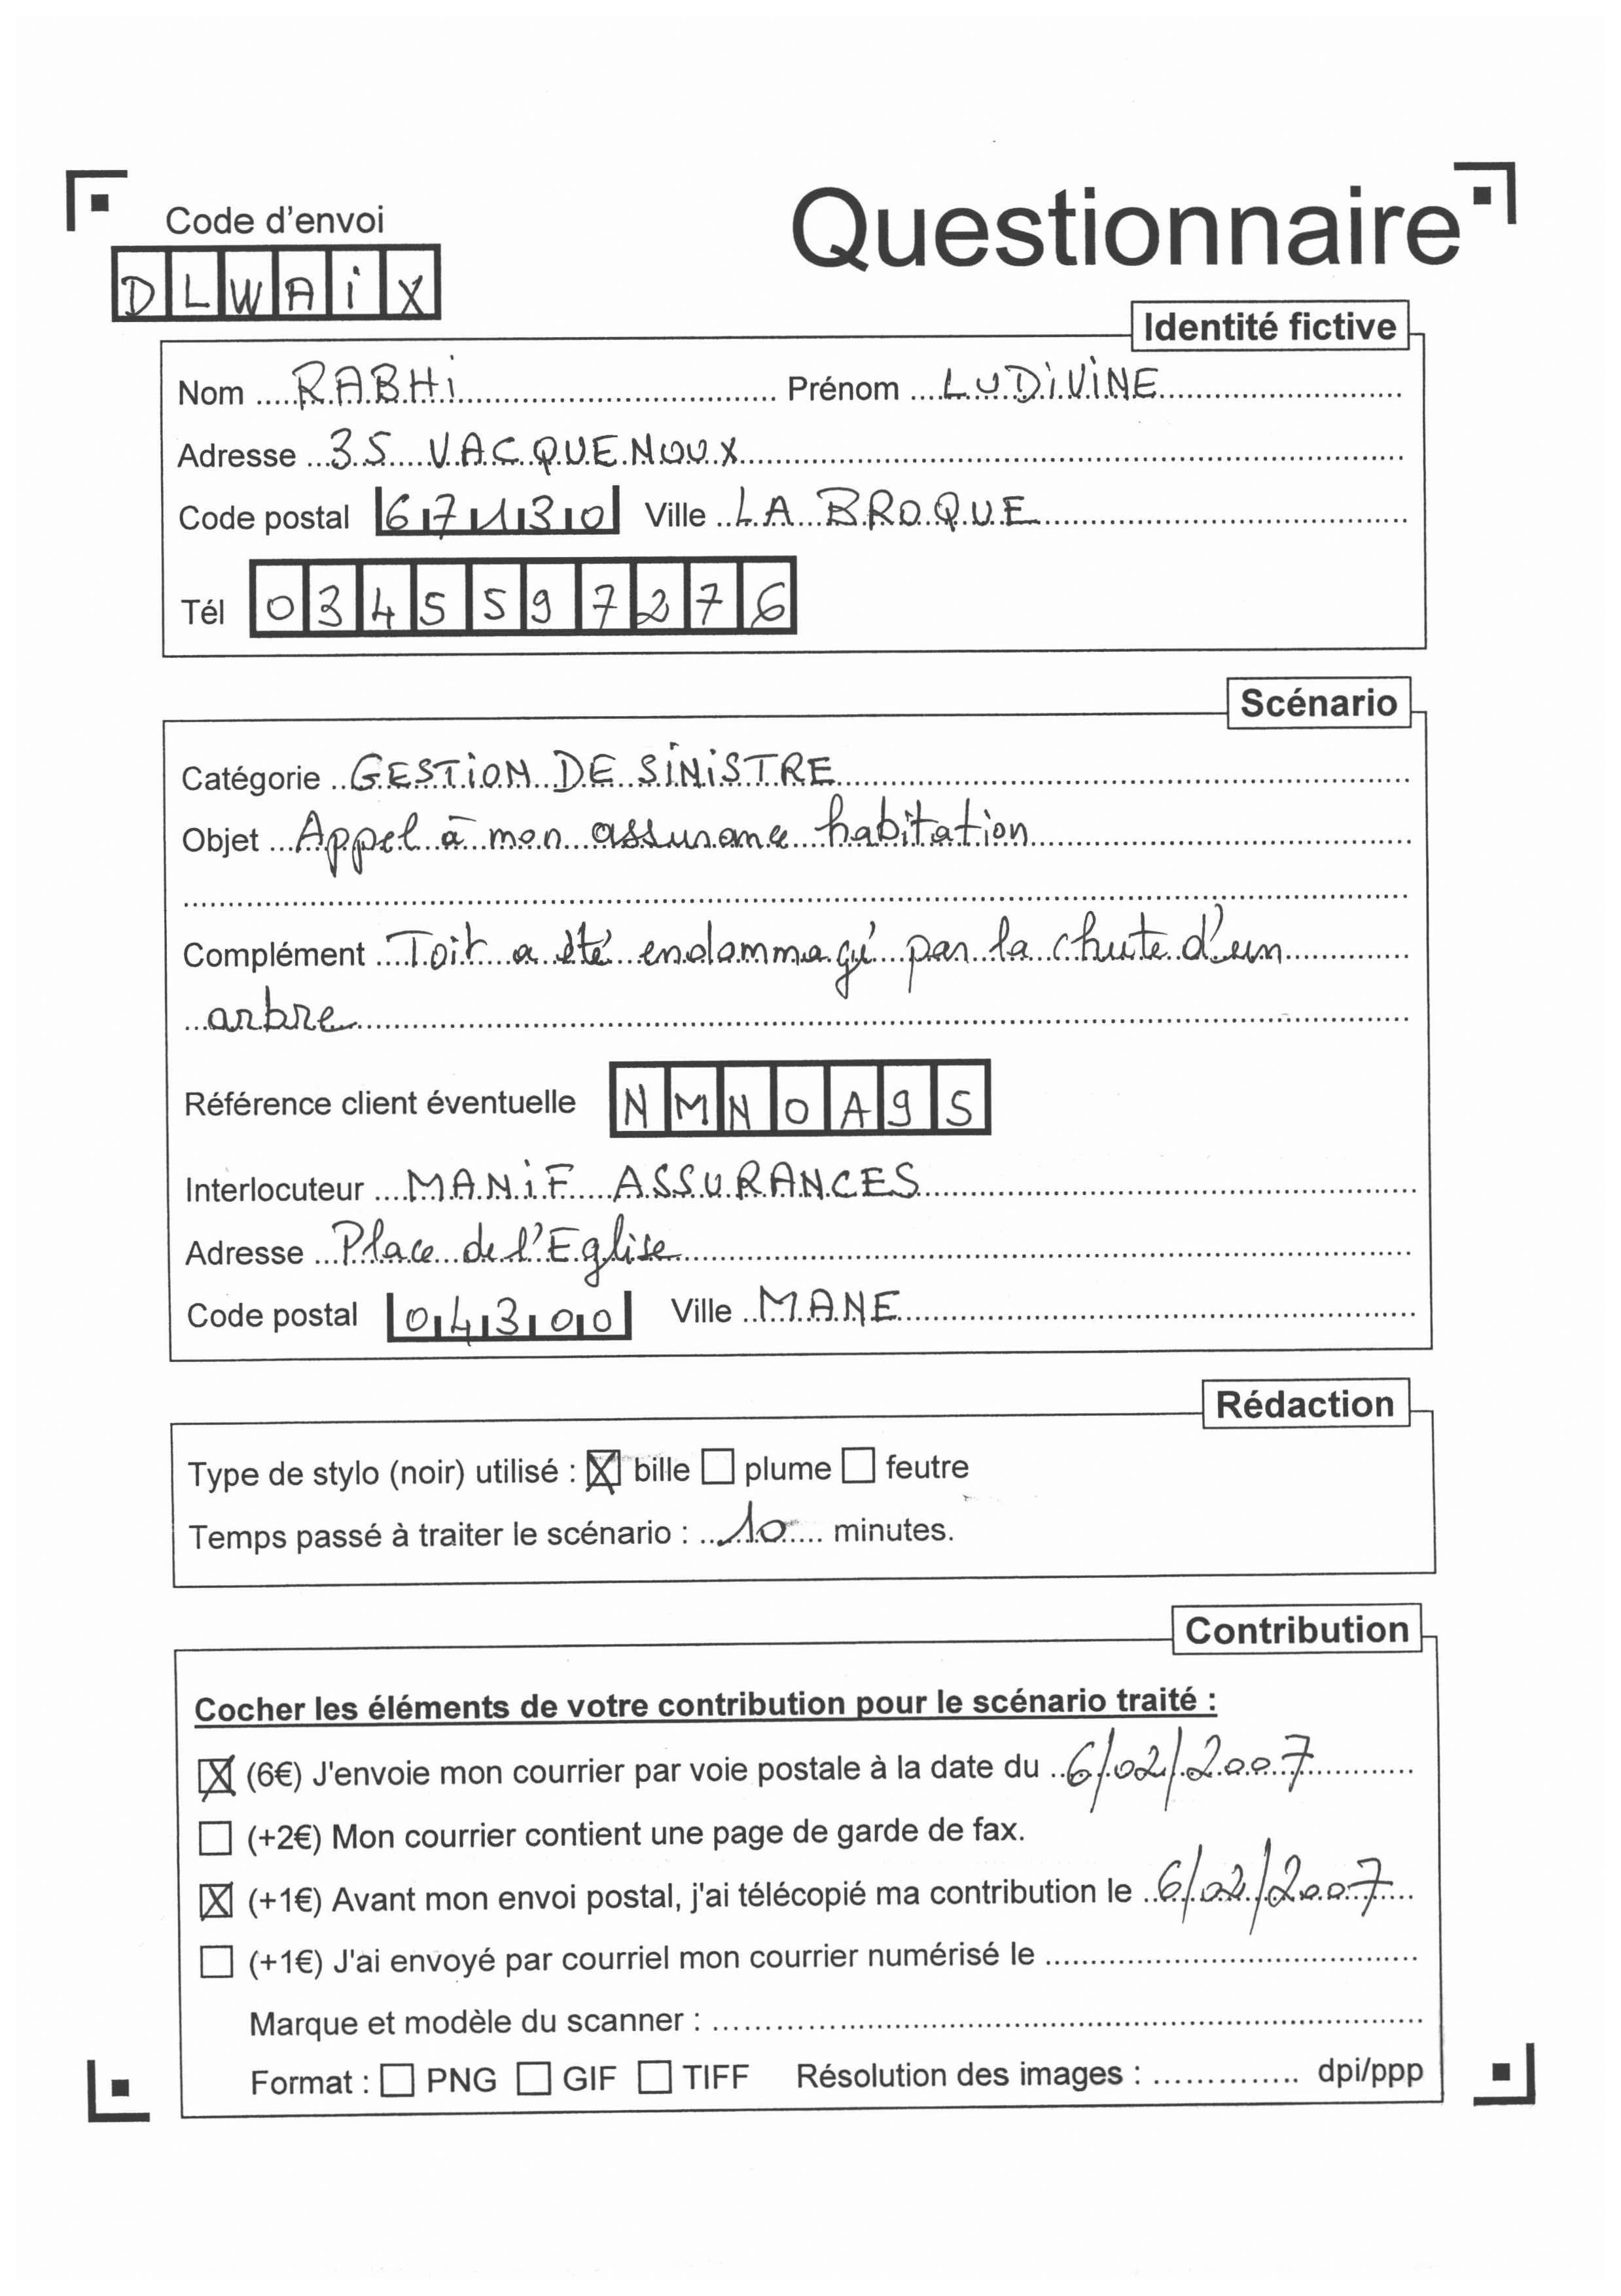 Code d'envoi
Questionnaire
DLWAiX
Identité fictive
Nom RABHi Prénom LUDiViNE
Adresse 35 VACQUENOUX
Code postal 67130 Ville LA BROQUE
Tél 0345597276
Scénario
Catégorie GESTiON DE SiNiSTRE
Objet Appel à mon assurance habitation
Complément Toit a été endommagé par la chute d'un
arbre
Référence client éventuelle NMNOA95
Interlocuteur MANiF ASSURANCES
Adresse Place de l'Eglise
Code postal 04300 Ville MANE
Rédaction
Type de stylo (noir) utilisé : ☒ bille ☐ plume ☐ feutre
Temps passé à traiter le scénario : 10 minutes.
Contribution
Cocher les éléments de votre contribution pour le scénario traité :
☒ (6€) J'envoie mon courrier par voie postale à la date du 6/02/2007
☐ (+2€) Mon courrier contient une page de garde de fax.
☒ (+1€) Avant mon envoi postal, j'ai télécopié ma contribution le 6/02/2007
☐ (+1€) J'ai envoyé par courriel mon courrier numérisé le
Marque et modèle du scanner :
Format : ☐ PNG ☐ GIF ☐ TIFF Résolution des images : dpi/ppp